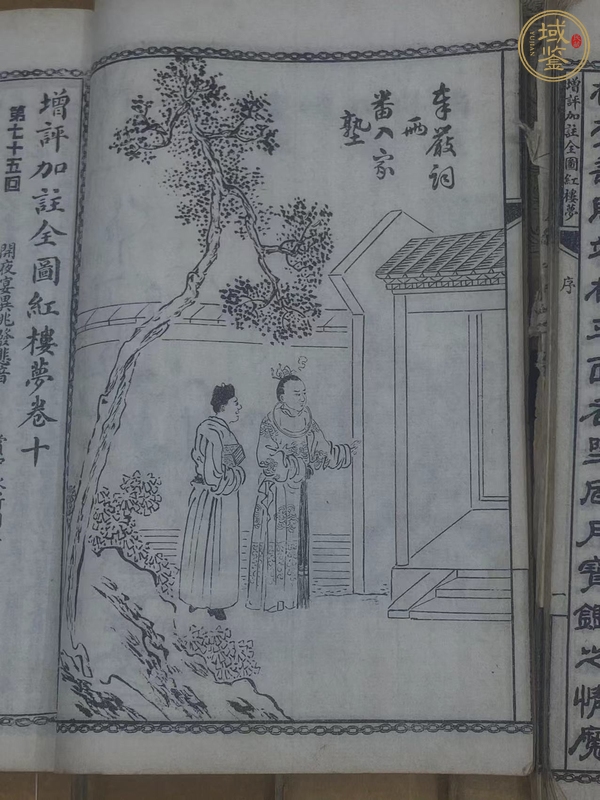 月寶鑑之情魔
增評加註全圖紅樓夢
序
奉嚴詞
兩
番入家
塾
增評加註全圖紅樓夢卷十
第七十五回
開夜宴異兆發悲音
域鉴
YUJIAN